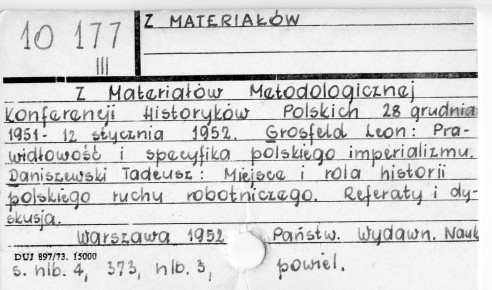 10 177
III
Z MATERIAŁÓW
Z Materiałów Metodologicznej
Konferencji Historyków Polskich 28 grudnia
1951- 12 stycznia 1952. Grosfeld Leon: Pra-
widłowość i specyfika polskiego imperializmu.
Daniszewski Tadeusz: Miejsce i rola historii
polskiego ruchu robotniczego. Referaty i dy-
skusja.
Warszawa 1952 Państw. Wydawn. Nauk
DUJ 897/73. 15000
s. nlb. 4, 373, nlb. 3, powiel.